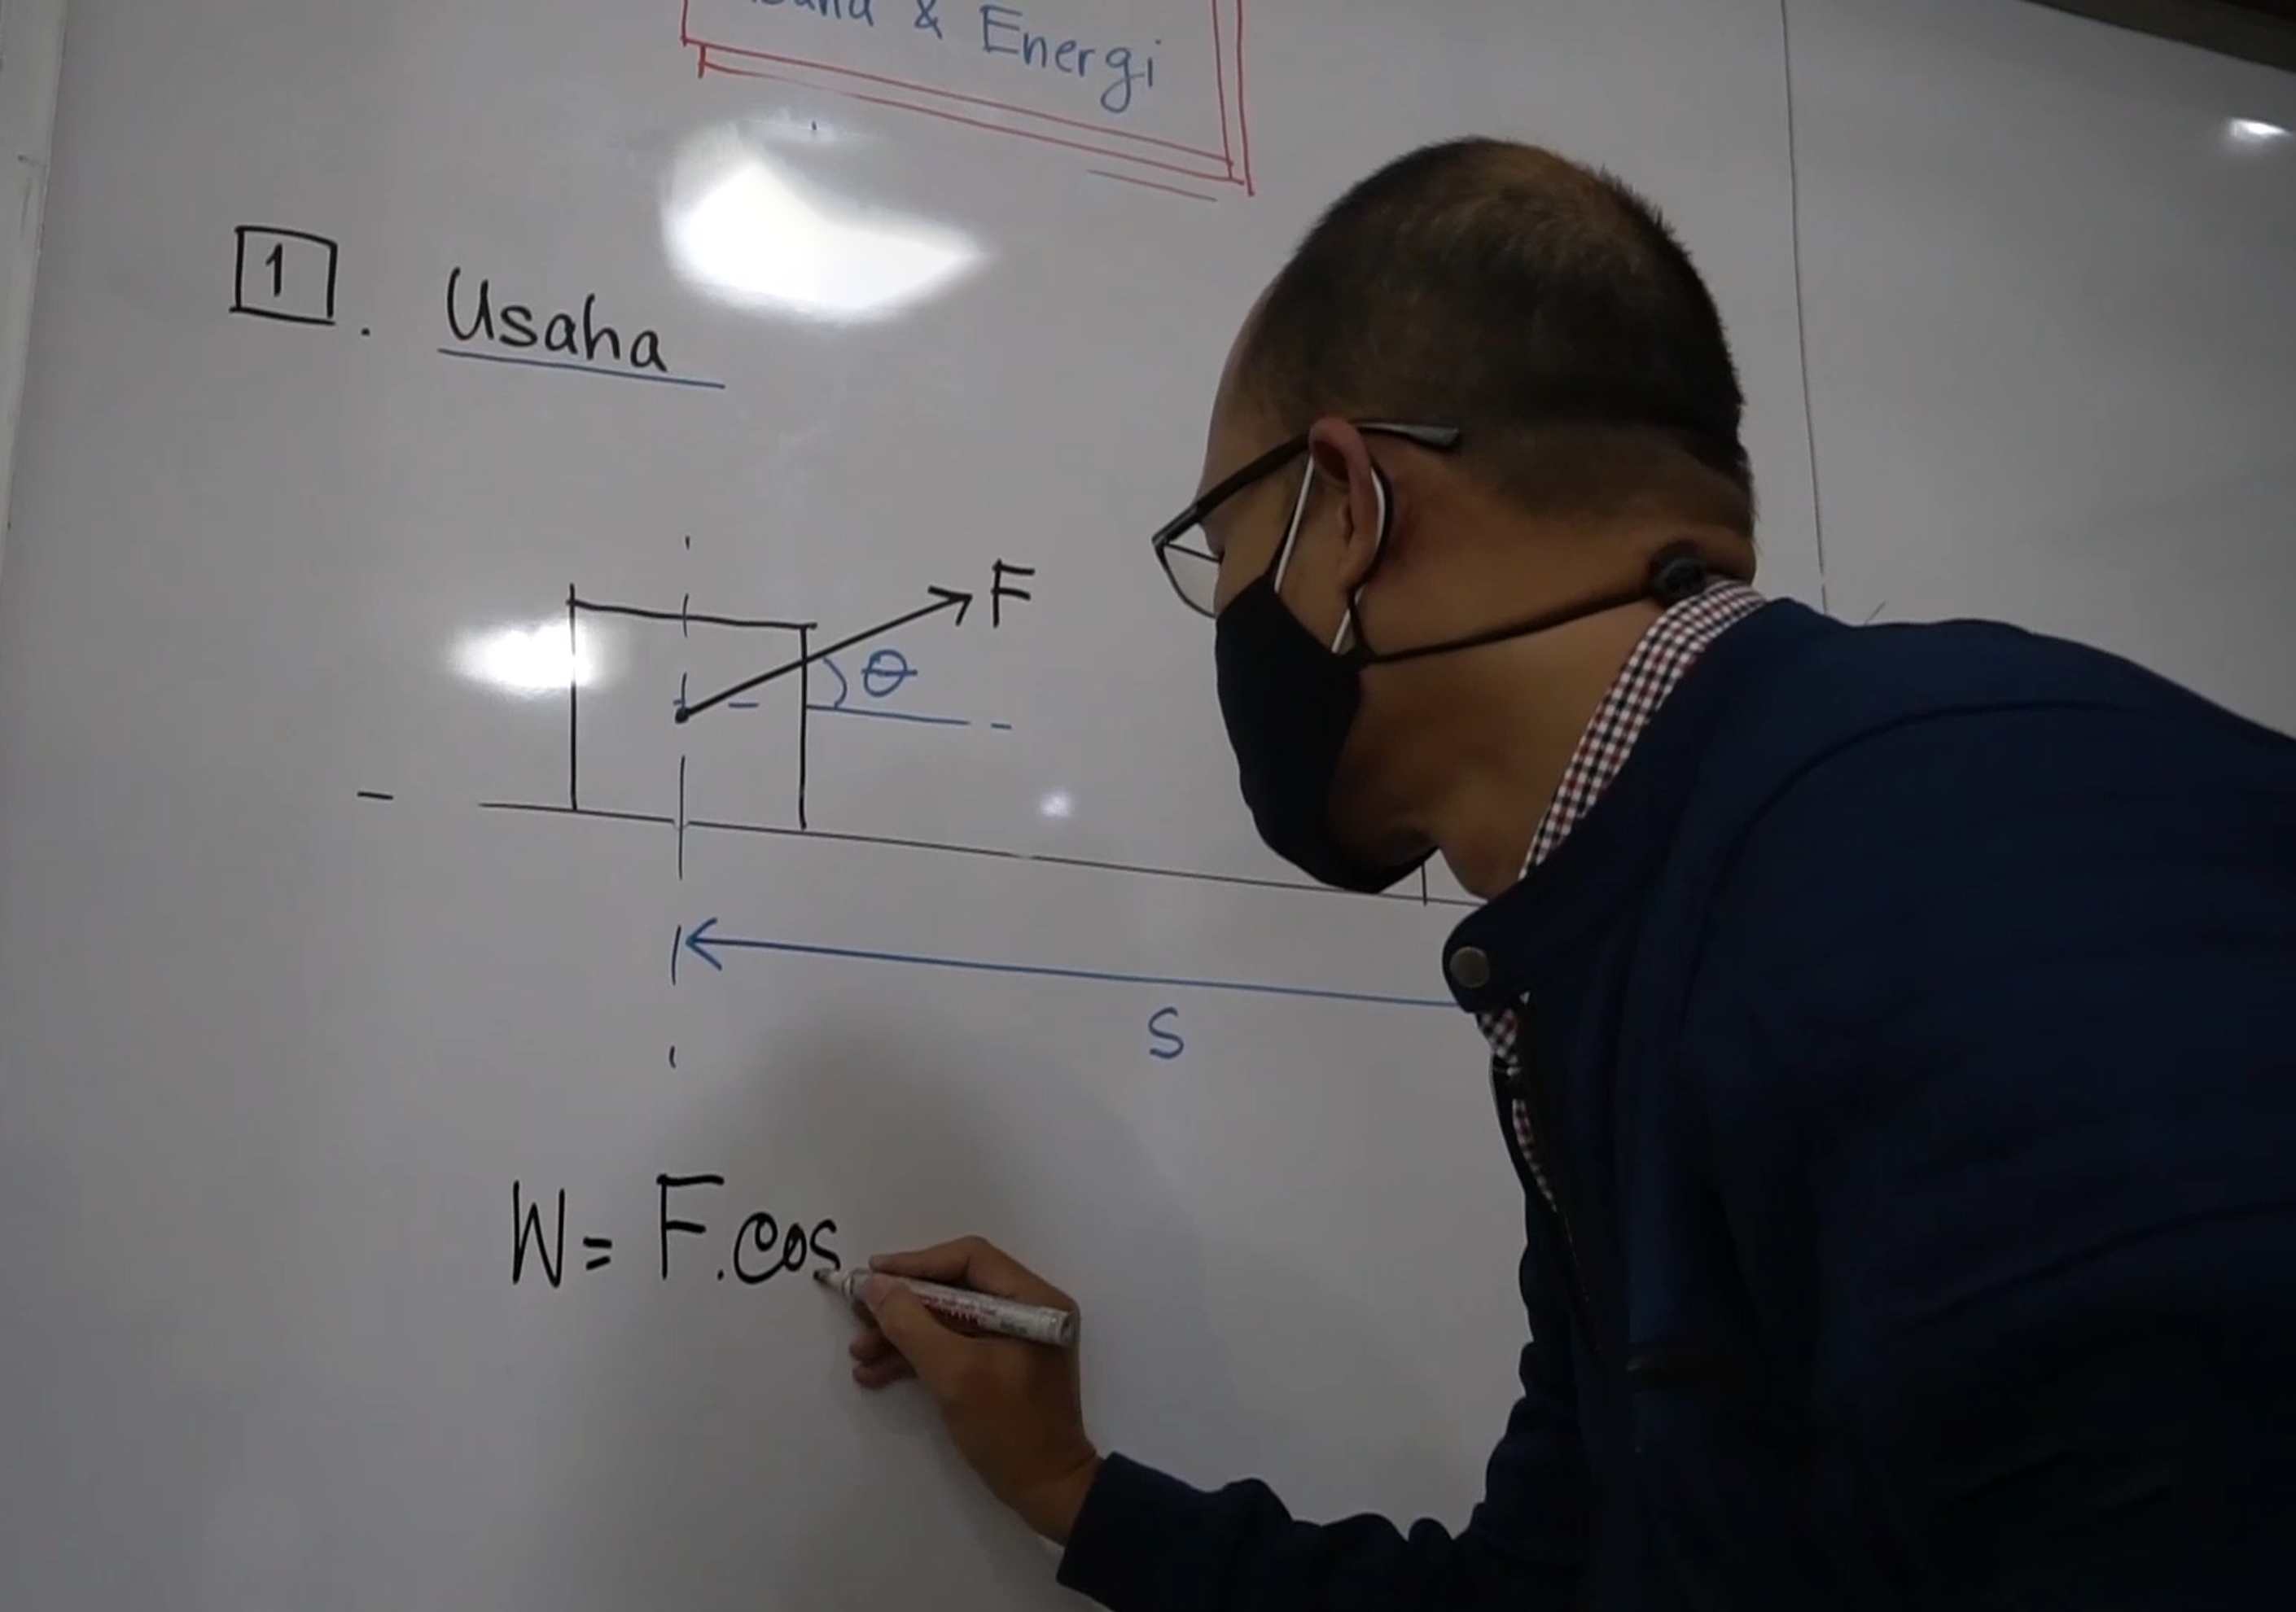 & Energi
1. Usaha
F
θ
S
W = F.cos